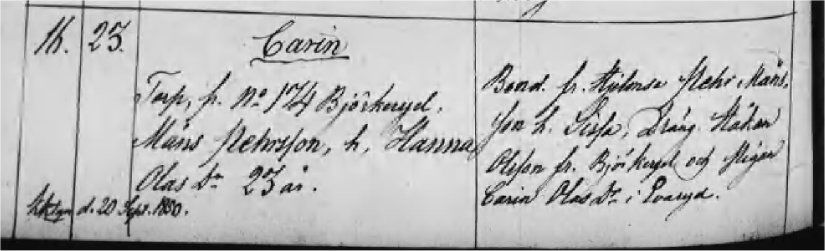 16. 23. Carin
Torp. fr. No 174 Björkeryd.
Måns Pehrsson, h, Hanna
Olas Dr 23 år.
d. 20 Sept. 1880.
Bond. fr. Pehr Måns-
son h. Sissa, Dräng. Håkan
Olsson fr. Björkeryd och Pigan
Carin Olas Dr i Evaryd.